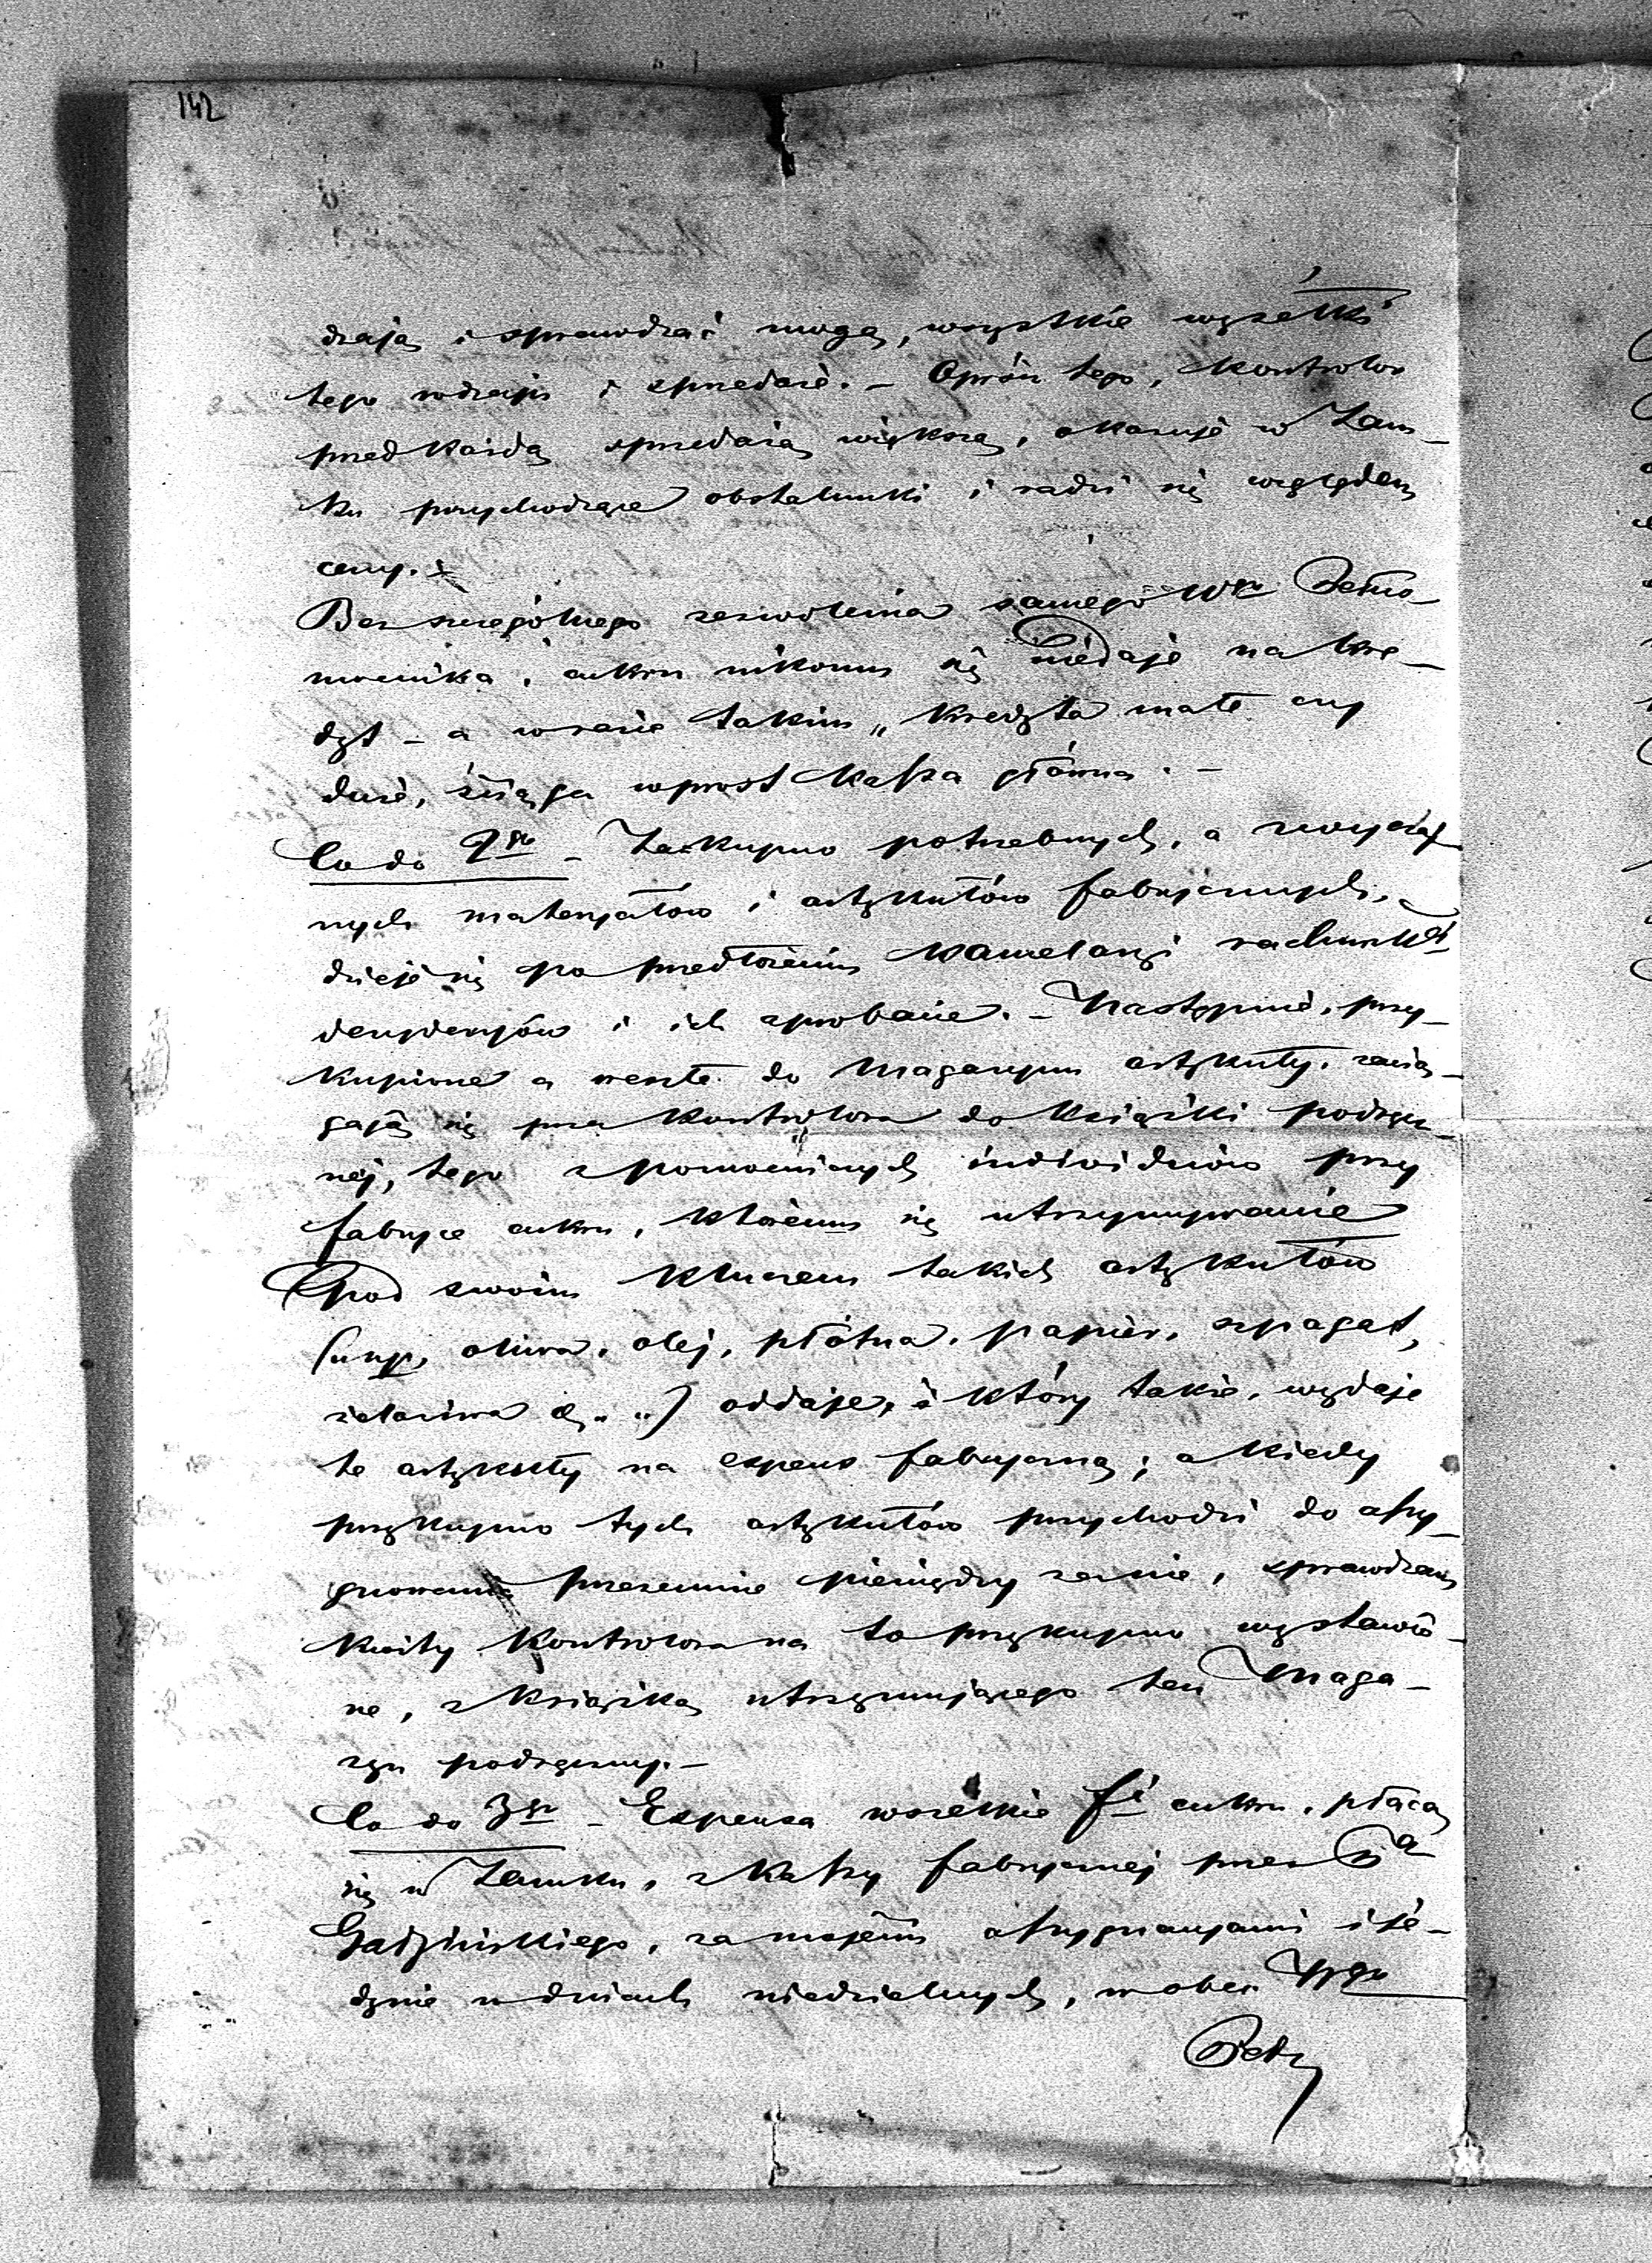 142
dzają i sprawdzać mogą, wszystkie wysełki
tego rodzaju i sprzedaże. – Oprócz tego, Kontrolor
przed każdą sprzedażą większą, okazuje w Zam-
ku przychodzące obstalunki i radzi się względem
ceny.
Bez szczególnego zezwolenia samego Wgo Pełno
mocnika, cukru nikomu się niedaje na kre-
dyt – a w razie takim, kredyta małe czy
duże, ściąga wprost Kassa główna. –
Co do 2go – Zakupno potrzebnych, a zwyczaj
nych materyałów i artykułów fabrycznych,
dzieje się po przedłożeniu Kancelaryi
i ich aprobacie. – Następnie, przy-
kupione a weszłe do Magazynu artykuły, zacią-
gają się prze Kontrolora do Książki podręcz-
néj, tego z pomocniczych individuów przy
fabryce cukru, któremu się utrzymywanie
pod swoim kluczem takich artykułów
(np, oliwa, olej, płótna, papier, szpagat,
żelaziwa &..) oddaje, i który takie, wydaje
te artykuły na expens fabryczną; a kiedy
przykupno tych artykułów przychodzi do assy-
gnowania przezemnie pieniędzy zań, sprawdzam
kwity Kontrolora na to przykupno wystawio-
ne, z książką utrzymującego ten Maga-
zyn podręczny. –
Co do 3go – Expensa wszelkie cukru, płacą
się w Zamku, z Kassy fabrycznej przez Pa
Gadzińskiego, za mojemi assygnacyami i je-
dynie w dniach niedzielnych, w obec Wgo